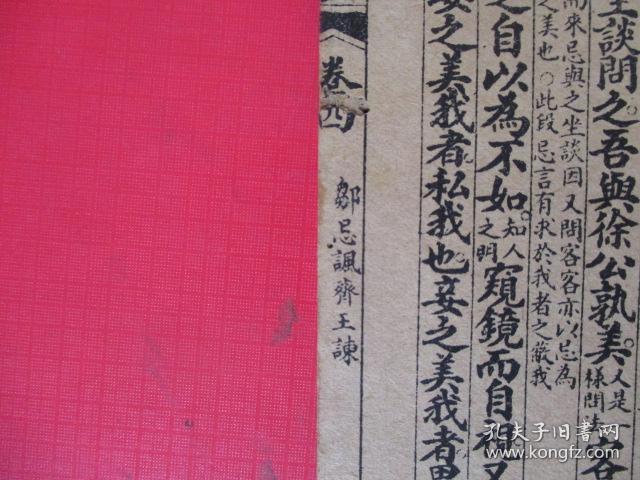 坐談問之。吾與徐公孰美。
又是
樣問法
客
而來忌與之坐談因又問客客亦以忌為
之美也〇此段忌言有求於我者之蔽我
之自以為不如。
知人
之明
窺鏡而自視又
妻之美我者私我也。妾之美我者畏
卷四
鄒忌諷齊王諫
孔夫子旧书网
book.kongfz.com